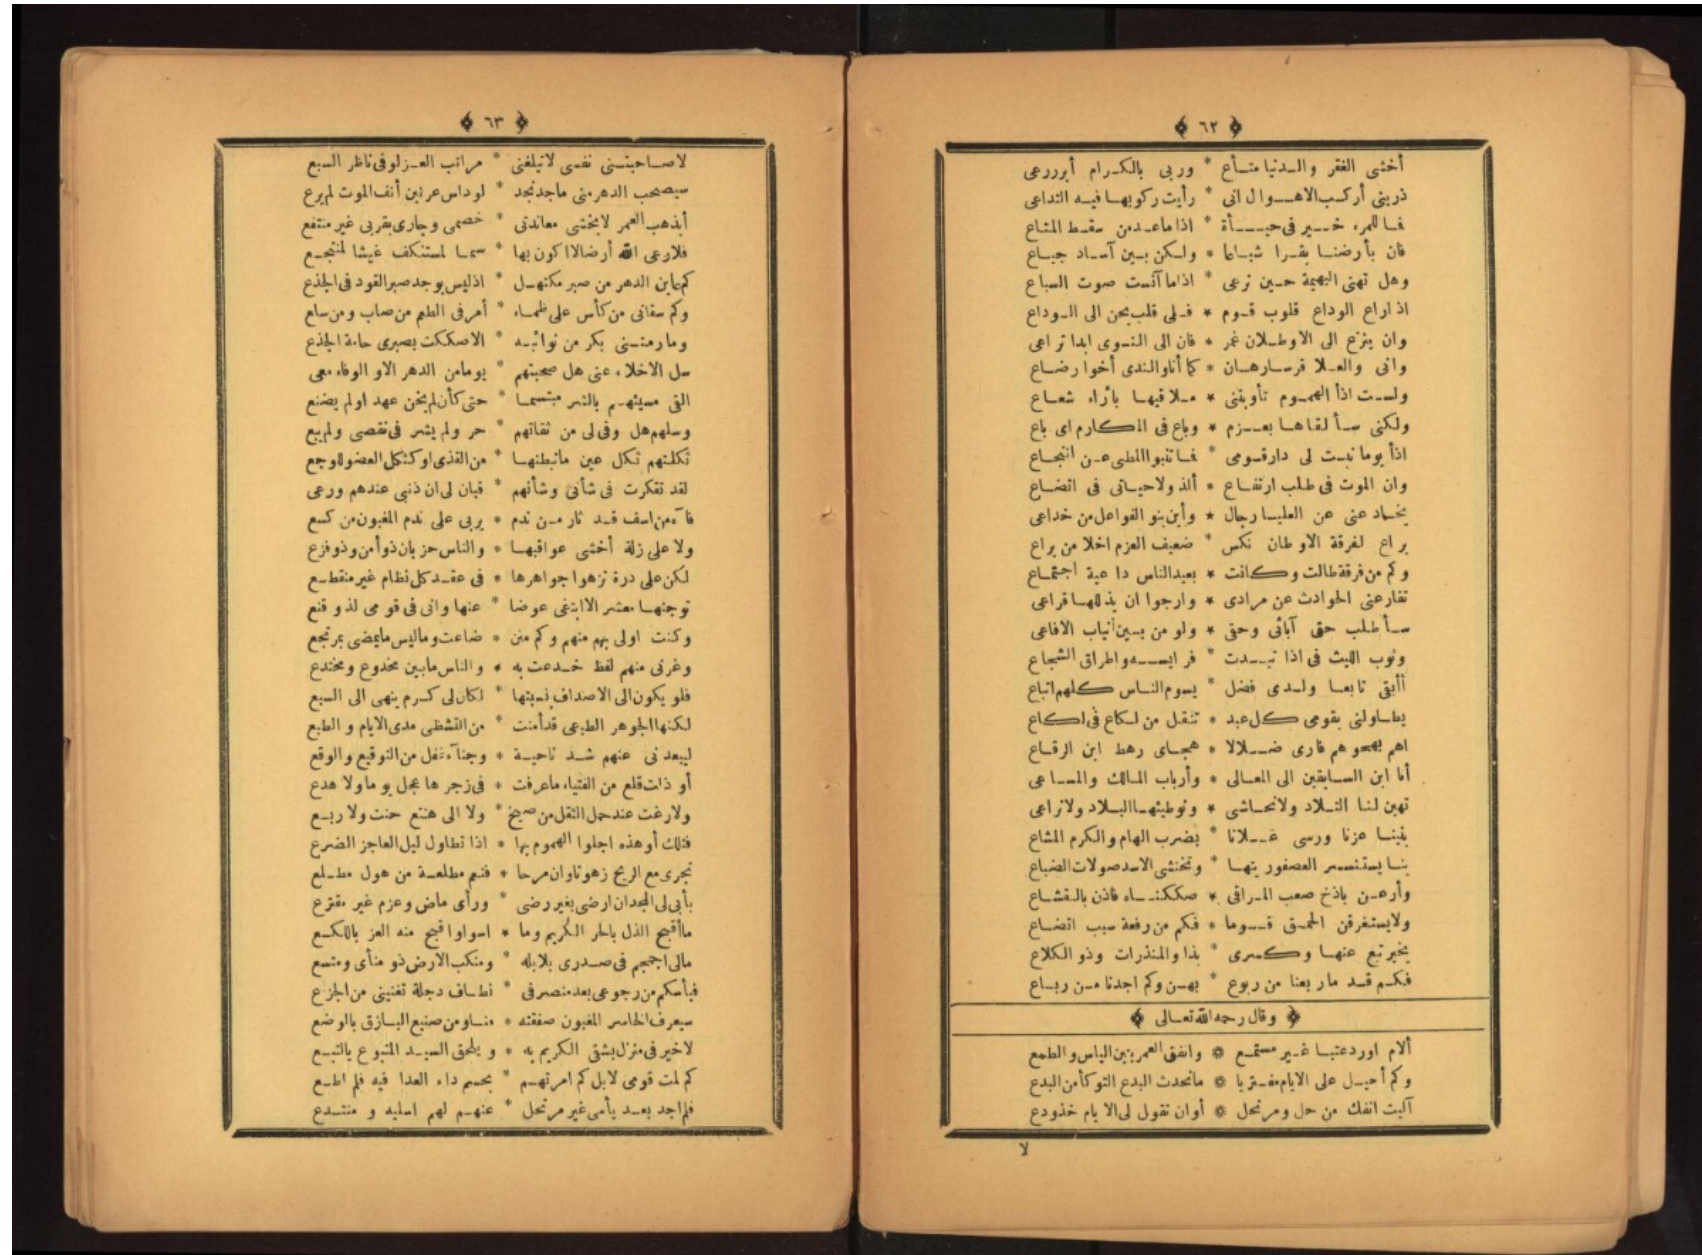 ﴿ ٦٢ ﴾
أخشى الفقر والدنيا متاع * وربى بالكرام أبر رعى
ذرينى أركب الاهوال انى * رأيت ركوبها فيه التداعى
فما للمرء خير فى حياة * اذا ماعد من سقط المتاع
فان بأرضنا بقرا شباعا * ولكن بين آساد جياع
وهل تهنى البهيمة حين ترعى * اذا ما آنست صوت السباع
اذ اراع الوداع قلوب قوم * فلى قلب يحن الى الوداع
وان ينزع الى الاوطان غمر * فان الى النوى ابدا نزاعى
وانى والعلا فرسارهان * كما أنا والندى أخوا رضاع
ولست اذأ الهموم تأوبتنى * ملاقيها بآراء شعاع
ولكنى سألقاها بعزم * وباع فى المكارم اى باع
اذأ يوما نبت لى دار قومى * فما تنبوا المطى عن انتجاع
وان الموت فى طلب ارتفاع * ألذ ولا حياتى فى اتضاع
يخاد عنى عن العليا رجال * وأين بنو الفواعل من خداعى
يراع لفرقة الاوطان نكس * ضعيف العزم اخلا من يراع
وكم من فرقة طالت وكانت * بعيد الناس داعية اجتماع
تقارعنى الحوادث عن مرادى * وارجوا ان يذللها قراعى
سأطلب حقى آبائى وحقى * ولو من بين أنياب الافاعى
وثوب الليث فى اذا تبدت * فرايسه واطراق الشجاع
أأبقى تابعا ولدى فضل * يسوم الناس كلهم اتباع
يطاولنى بقومى كل عبد * تنقل من لكاع فى لكاع
اهم بهجوهم فارى ضلالا * هجاى رهط ابن الرقاع
أما ابن السابقين الى المعالى * وأرباب الممالك والمساعى
تهين لنا التلاد ولا نحاشى * ونوطيها البلاد ولا نراعى
بنينا عزنا ورسى علانا * بضرب الهام والكرم المشاع
بنا يستنسر العصفور تيها * وتخشى الاسد صولات الضباع
وأرعن باذخ صعب المراقى * صككناه فاذن بانقشاع
ولا يستغرقن الحمق قوما * فكم من رفعة سبب اتضاع
يخبر تبع عنها وكسرى * بذا والمنذرات وذو الكلاع
فكم قد مار بعنا من ربوع * بهن وكم اجدنا من رباع
﴿ وقال رحمه الله تعالى ﴾
ألام اورد عتبا غير مستمع * وانفق العمر بين الياس والطمع
وكم أحيل على الايام مفتريا * ماتحدث البدع التوكأ من البدع
آليت انفك من حل ومرتحل * أو ان تقول لى الايام خذودع
لا
﴿ ٦٣ ﴾
لاصاحبتنى نفسى لاتبلغنى * مراتب العز لو فى ناظر السبع
سيصحب الدهر منى ماجد نجد * لو داس عرنين أنف الموت لم يرع
أيذهب العمر لا يخشى معاندتى * خصمى وجارى بقربى غير منتفع
فلا رعى الله أرضا لا اكون بها * سما لمستنكف غيثا لمنتجع
كم يابن الدهر من صبر مكتهل * اذ ليس يوجد صبر القود فى الجذع
وكم سقانى من كأس على ظماء * أمر فى الطعم من صاب ومن سلع
وما رمتنى بكر من نوائبه * الا صككت بصبرى هامة الجذع
سل الاخلاء عنى هل صحبتهم * يوما من الدهر الا والوفاء معى
القى مسيئهم بالبشر مبتسما * حتى كأن لم يخن عهد اولم يضع
وسلهم هل وفى لى من ثقاتهم * حر ولم يشر فى نقصى ولم يبع
ثكلتهم ثكل عين ماتبطنها * من القذى او كثكل العضو للوجع
لقد تفكرت فى شأنى وشأنهم * فبان لى ان ذنبى عندهم ورعى
فآه من اسف قد ثار من ندم * يربى على ندم المغبون من كسع
ولا على زلة أخشى عواقبها * والناس حزبان ذو أمن وذو فزع
لكن على درة تزهوا جواهرها * فى عقد كل نظام غير منقطع
توجتها معشر الا ابتغى عوضا * عنها وانى فى قومى لذو قنع
وكنت اولى بهم منهم وكم منن * ضاعت وماليس مايمضى بمرتجع
وغرنى منهم لفظ خدعت به * والناس مابين مخدوع ومختدع
فلو يكون الى الاصداف نسبتها * لكان لى كرم ينهى الى السبع
لكنها الجوهر الطبعى قد أمنت * من التشظى مدى الايام و الطبع
ليبعدنى عنهم شد ناحية * وجنآء تغفل من التوقيع والوقع
أو ذات قلع من الفتياء ماعرفت * فى زجرها عجل يوما ولا هدع
ولا رغت عند حمل الثقل من ضبح * ولا الى هنتع حنت ولا ربع
فتلك أو هذه اجلوا الهموم بها * اذا تطاول ليل العاجز الضرع
تجرى مع الريح زهوتاوان مرحا * فنعم مطلعة من هول مطلع
يأبى لى المجدان ارضى بغير رضى * ورأى ماض وعزم غير مفترع
ما أقبح الذل بالحر الكريم وما * اسواواقبح منه العز باللكع
مالى اجمجم فى صدرى بلابله * ومنكب الارض ذو منأى ومتسع
فيأسكم من رجوعى بعد منصرفى * نطاف دجلة تغنينى من الجزع
سيعرف الخاسر المغبون صفقته * مناومن صنيع البازق بالوضع
لاخير فى منزل يشقى الكريم به * ويلحق السيد المتبوع بالتبع
كم لمت قومى لا بل كم امرتهم * بحسم داء العدا فيه فلم اطع
فلم اجد بعد يأسى غير مرتحل * عنهم لهم اسليه و منتدع